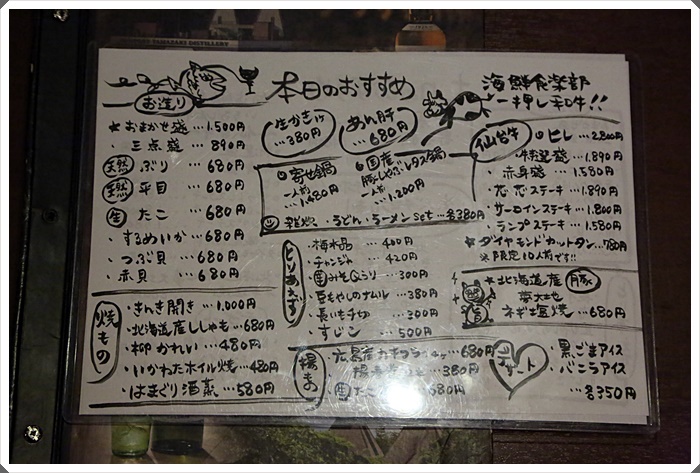 本日のおすすめ
お造り
★おまかせ盛…1,500円
・三点盛…890円
天然 ぶり…680円
天然 平目…680円
生 たこ…680円
・するめいか…680円
・つぶ貝…680円
・赤貝…680円
焼もの
・きんき開き…1,000円
・北海道産ししゃも…680円
・柳かれい…480円
・いかわたホイル焼…480円
・はまぐり酒蒸…580円
生かき
…380円
あん肝
…680円
寄せ鍋
一人前
…1,480円
国産
豚しゃぶレタス鍋
一人前
…1,200円
雑炊・うどん・ラーメンset…各380円
とりあえず
・梅水晶…400円
・チャンジャ…420円
・生みそ…300円
・豆もやしのナムル…300円
・長いも千切…300円
・すじこ…500円
揚もの
・広島産カキフライ 680円
380円
・生たこ 680円
海鮮食楽部
一押し和牛!!
仙台牛
ヒレ…2,800円
・特選盛…1,890円
・赤身盛…1,580円
ステーキ…1,890円
・サーロインステーキ…1,800円
・ランプステーキ…1,580円
★ダイヤモンドカットタン…780円
※限定10人前です!!
★北海道産 豚
夢大地
ネギ塩焼…680円
デザート
・黒ごまアイス
・バニラアイス
…各350円